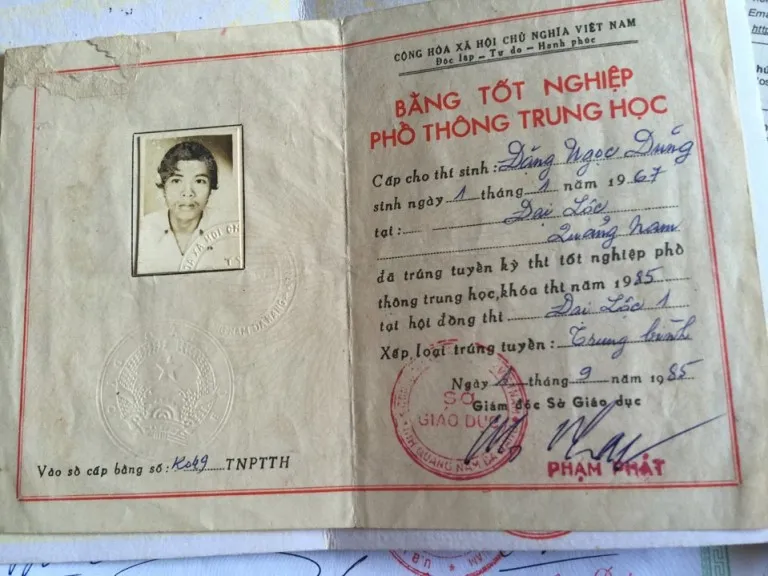 Vào sổ cấp bằng số: K049 TNPTTH
CỘNG HÒA XÃ HỘI CHỦ NGHĨA VIỆT NAM
Độc lập - Tự do - Hạnh phúc
BẰNG TỐT NGHIỆP
PHỔ THÔNG TRUNG HỌC
Cấp cho thí sinh: Đặng Ngọc Dũng
sinh ngày 1 tháng 1 năm 1967
tại: Đại Lộc
Quảng Nam
đã trúng tuyển kỳ thi tốt nghiệp phổ
thông trung học, khóa thi năm 1985
tại hội đồng thi Đại Lộc 1
Xếp loại trúng tuyển: Trung bình
Ngày tháng 9 năm 1985
Giám đốc Sở Giáo dục
SỞ
GIÁO DỤC
TỈNH QUẢNG NAM ĐÀ NẴNG
PHẠM PHÁT